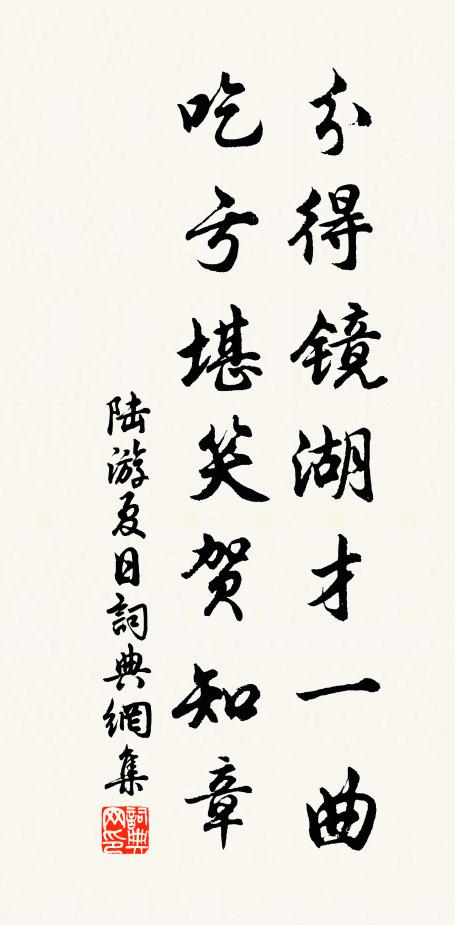 分得镜湖才一曲
吃亏堪笑贺知章
陆游夏日詞典網集
詞典
网印